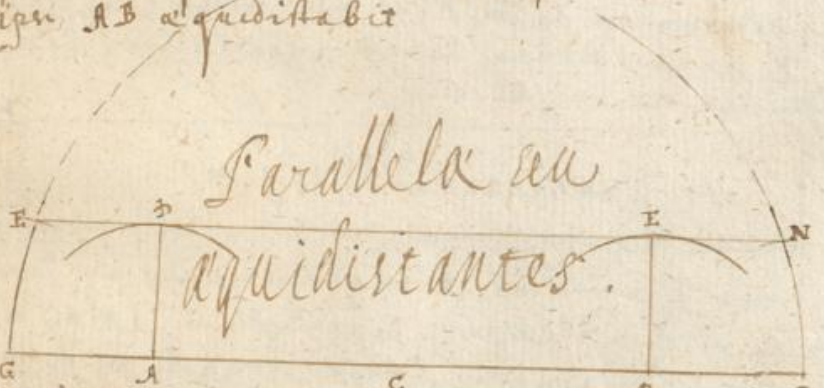 ipsi AB æquidistabit
Parallelæ seu
E D E N
æquidistantes.
G A C